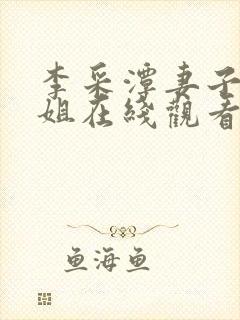 李采潭妻子
姐在綫觀看
鱼海鱼